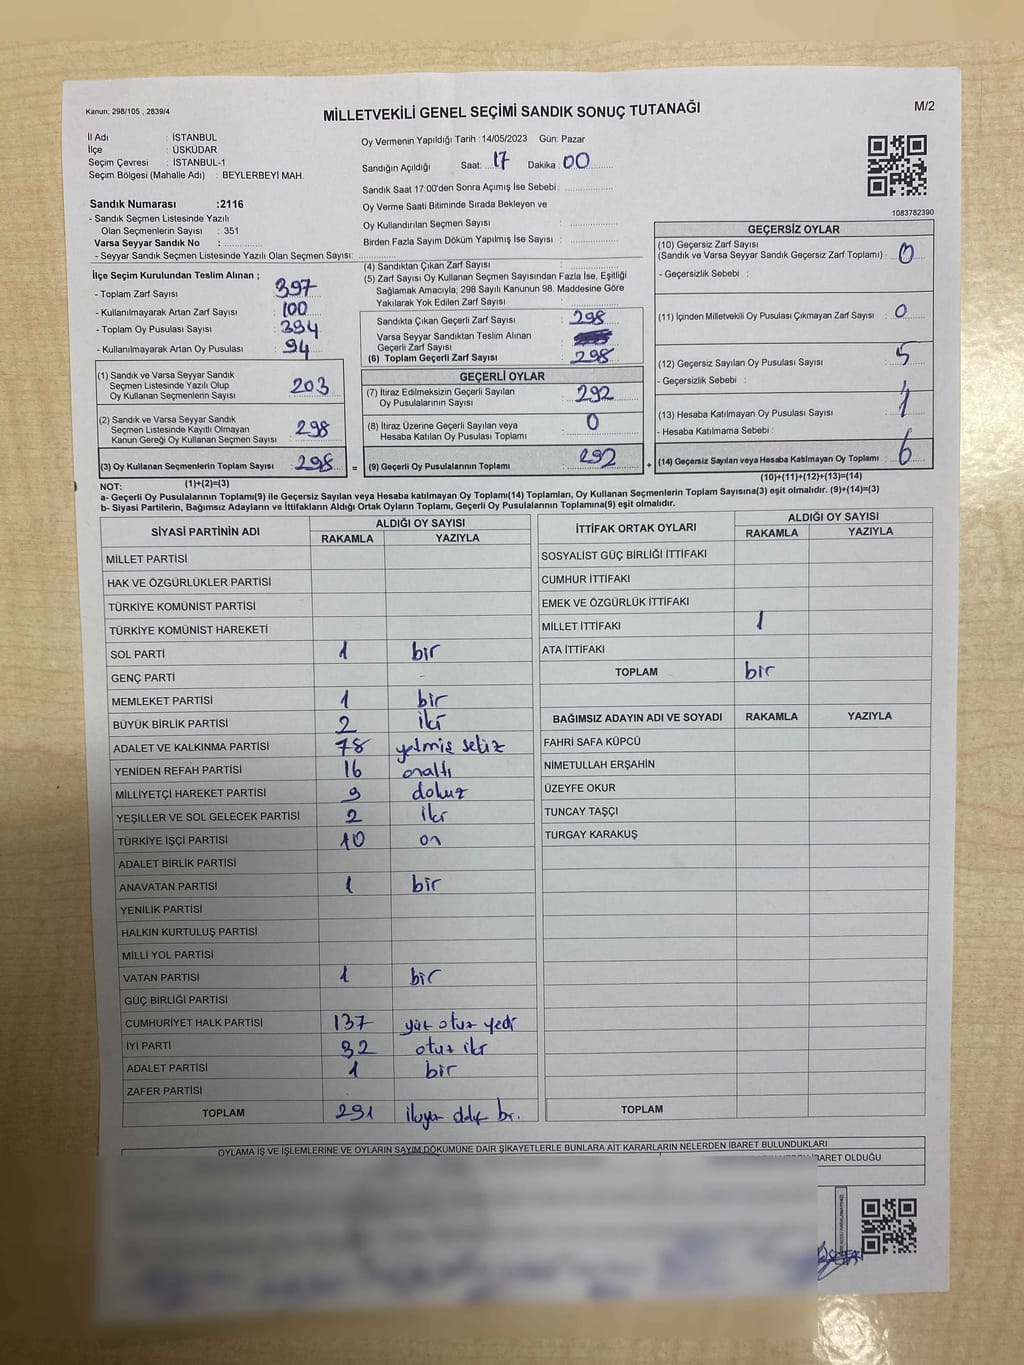 Kanun; 298/105 , 2839/4
MİLLETVEKİLİ GENEL SEÇİMİ SANDIK SONUÇ TUTANAĞI
M/2
İl Adı : İSTANBUL
İlçe : ÜSKÜDAR
Seçim Çevresi : İSTANBUL-1
Seçim Bölgesi (Mahalle Adı) : BEYLERBEYİ MAH.
Oy Vermenin Yapıldığı Tarih : 14/05/2023 Gün: Pazar
Sandığın Açıldığı Saat: 17 Dakika : 00
Sandık Saat 17:00'den Sonra Açımış İse Sebebi :
Oy Verme Saati Bitiminde Sırada Bekleyen ve
Oy Kullandırılan Seçmen Sayısı :
Birden Fazla Sayım Döküm Yapılmış İse Sayısı :
1083782390
Sandık Numarası :2116
- Sandık Seçmen Listesinde Yazılı
Olan Seçmenlerin Sayısı : 351
Varsa Seyyar Sandık No :
- Seyyar Sandık Seçmen Listesinde Yazılı Olan Seçmen Sayısı:
İlçe Seçim Kurulundan Teslim Alınan ;
- Toplam Zarf Sayısı : 397
- Kullanılmayarak Artan Zarf Sayısı : 100
- Toplam Oy Pusulası Sayısı : 394
- Kullanılmayarak Artan Oy Pusulası : 94
(1) Sandık ve Varsa Seyyar Sandık
Seçmen Listesinde Yazılı Olup
Oy Kullanan Seçmenlerin Sayısı : 203
(2) Sandık ve Varsa Seyyar Sandık
Seçmen Listesinde Kayıtlı Olmayan
Kanun Gereği Oy Kullanan Seçmen Sayısı : 298
(3) Oy Kullanan Seçmenlerin Toplam Sayısı : 298
(1)+(2)=(3)
(4) Sandıktan Çıkan Zarf Sayısı :
(5) Zarf Sayısı Oy Kullanan Seçmen Sayısından Fazla İse, Eşitliği
Sağlamak Amacıyla; 298 Sayılı Kanunun 98. Maddesine Göre
Yakılarak Yok Edilen Zarf Sayısı :
Sandıkta Çıkan Geçerli Zarf Sayısı : 298
Varsa Seyyar Sandıktan Teslim Alınan
Geçerli Zarf Sayısı :
(6) Toplam Geçerli Zarf Sayısı : 298
GEÇERLİ OYLAR
(7) İtiraz Edilmeksizin Geçerli Sayılan
Oy Pusulalarının Sayısı : 292
(8) İtiraz Üzerine Geçerli Sayılan veya
Hesaba Katılan Oy Pusulası Toplamı : 0
= (9) Geçerli Oy Pusulalarının Toplamı : 292 +
GEÇERSİZ OYLAR
(10) Geçersiz Zarf Sayısı
(Sandık ve Varsa Seyyar Sandık Geçersiz Zarf Toplamı) : 0
- Geçersizlik Sebebi :
(11) İçinden Milletvekili Oy Pusulası Çıkmayan Zarf Sayısı : 0
(12) Geçersiz Sayılan Oy Pusulası Sayısı : 5
- Geçersizlik Sebebi :
(13) Hesaba Katılmayan Oy Pusulası Sayısı : 1
- Hesaba Katılmama Sebebi :
(14) Geçersiz Sayılan veya Hesaba Katılmayan Oy Toplamı : 6
(10)+(11)+(12)+(13)=(14)
NOT:
a- Geçerli Oy Pusulalarının Toplamı(9) ile Geçersiz Sayılan veya Hesaba katılmayan Oy Toplamı(14) Toplamları, Oy Kullanan Seçmenlerin Toplam Sayısına(3) eşit olmalıdır. (9)+(14)=(3)
b- Siyasi Partilerin, Bağımsız Adayların ve İttifakların Aldığı Ortak Oyların Toplamı, Geçerli Oy Pusulalarının Toplamına(9) eşit olmalıdır.
SİYASİ PARTİNİN ADI ALDIĞI OY SAYISI
RAKAMLA YAZIYLA
MİLLET PARTİSİ
HAK VE ÖZGÜRLÜKLER PARTİSİ
TÜRKİYE KOMÜNİST PARTİSİ
TÜRKİYE KOMÜNİST HAREKETİ
SOL PARTİ 1 bir
GENÇ PARTİ -
MEMLEKET PARTİSİ 1 bir
BÜYÜK BİRLİK PARTİSİ 2 iki
ADALET VE KALKINMA PARTİSİ 78 yetmiş sekiz
YENİDEN REFAH PARTİSİ 16 onaltı
MİLLİYETÇİ HAREKET PARTİSİ 9 dokuz
YEŞİLLER VE SOL GELECEK PARTİSİ 2 iki
TÜRKİYE İŞÇİ PARTİSİ 10 on
ADALET BİRLİK PARTİSİ
ANAVATAN PARTİSİ 1 bir
YENİLİK PARTİSİ
HALKIN KURTULUŞ PARTİSİ
MİLLİ YOL PARTİSİ
VATAN PARTİSİ 1 bir
GÜÇ BİRLİĞİ PARTİSİ
CUMHURİYET HALK PARTİSİ 137 yüz otuz yedi
İYİ PARTİ 32 otuz iki
ADALET PARTİSİ 1 bir
ZAFER PARTİSİ
TOPLAM 291
İTTİFAK ORTAK OYLARI ALDIĞI OY SAYISI
RAKAMLA YAZIYLA
SOSYALİST GÜÇ BİRLİĞİ İTTİFAKI
CUMHUR İTTİFAKI
EMEK VE ÖZGÜRLÜK İTTİFAKI
MİLLET İTTİFAKI 1
ATA İTTİFAKI
TOPLAM bir
BAĞIMSIZ ADAYIN ADI VE SOYADI RAKAMLA YAZIYLA
FAHRİ SAFA KÜPCÜ
NİMETULLAH ERŞAHİN
ÜZEYFE OKUR
TUNCAY TAŞÇI
TURGAY KARAKUŞ
TOPLAM
OYLAMA İŞ VE İŞLEMLERİNE VE OYLARIN SAYIM DÖKÜMÜNE DAİR ŞİKAYETLERLE BUNLARA AİT KARARLARIN NELERDEN İBARET BULUNDUKLARI
İBARET OLDUĞU